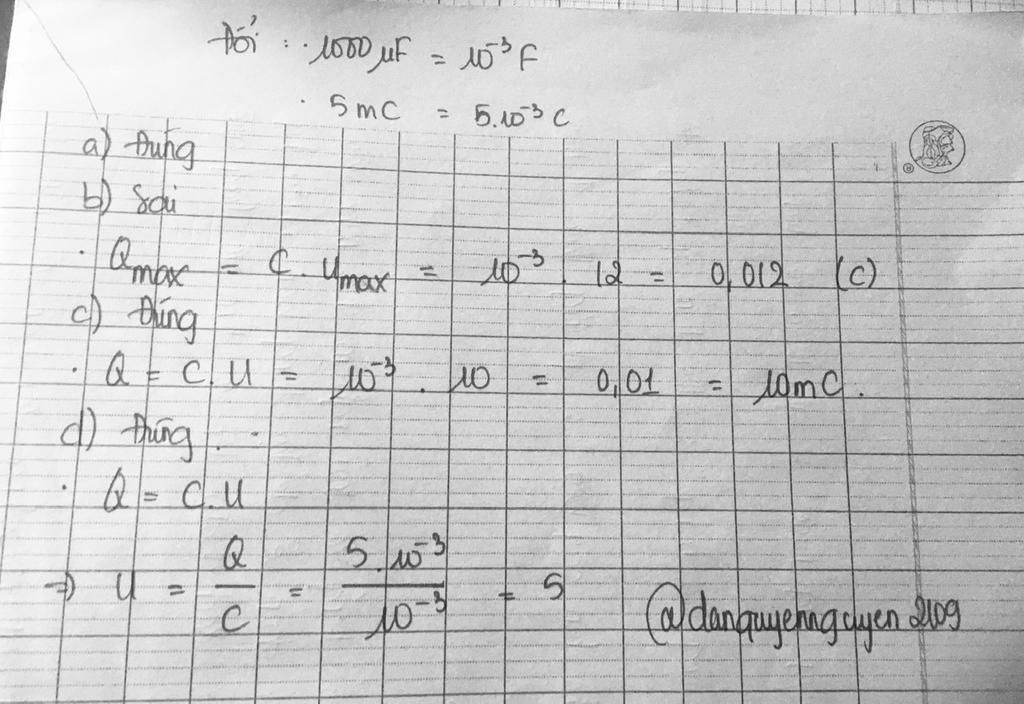 Đổi : · 1000 μF = 10⁻³ F
· 5 mC = 5.10⁻³ C
a) Đúng
b) Sai
· Qmax = C . Umax = 10⁻³ . 12 = 0,012 (C)
c) Đúng
· Q = C.U = 10⁻³ . 10 = 0,01 = 10mC.
d) Đúng .
· Q = C.U
⇒ U = Q/C = 5.10⁻³/10⁻³ = 5
@danquyennguyen2109